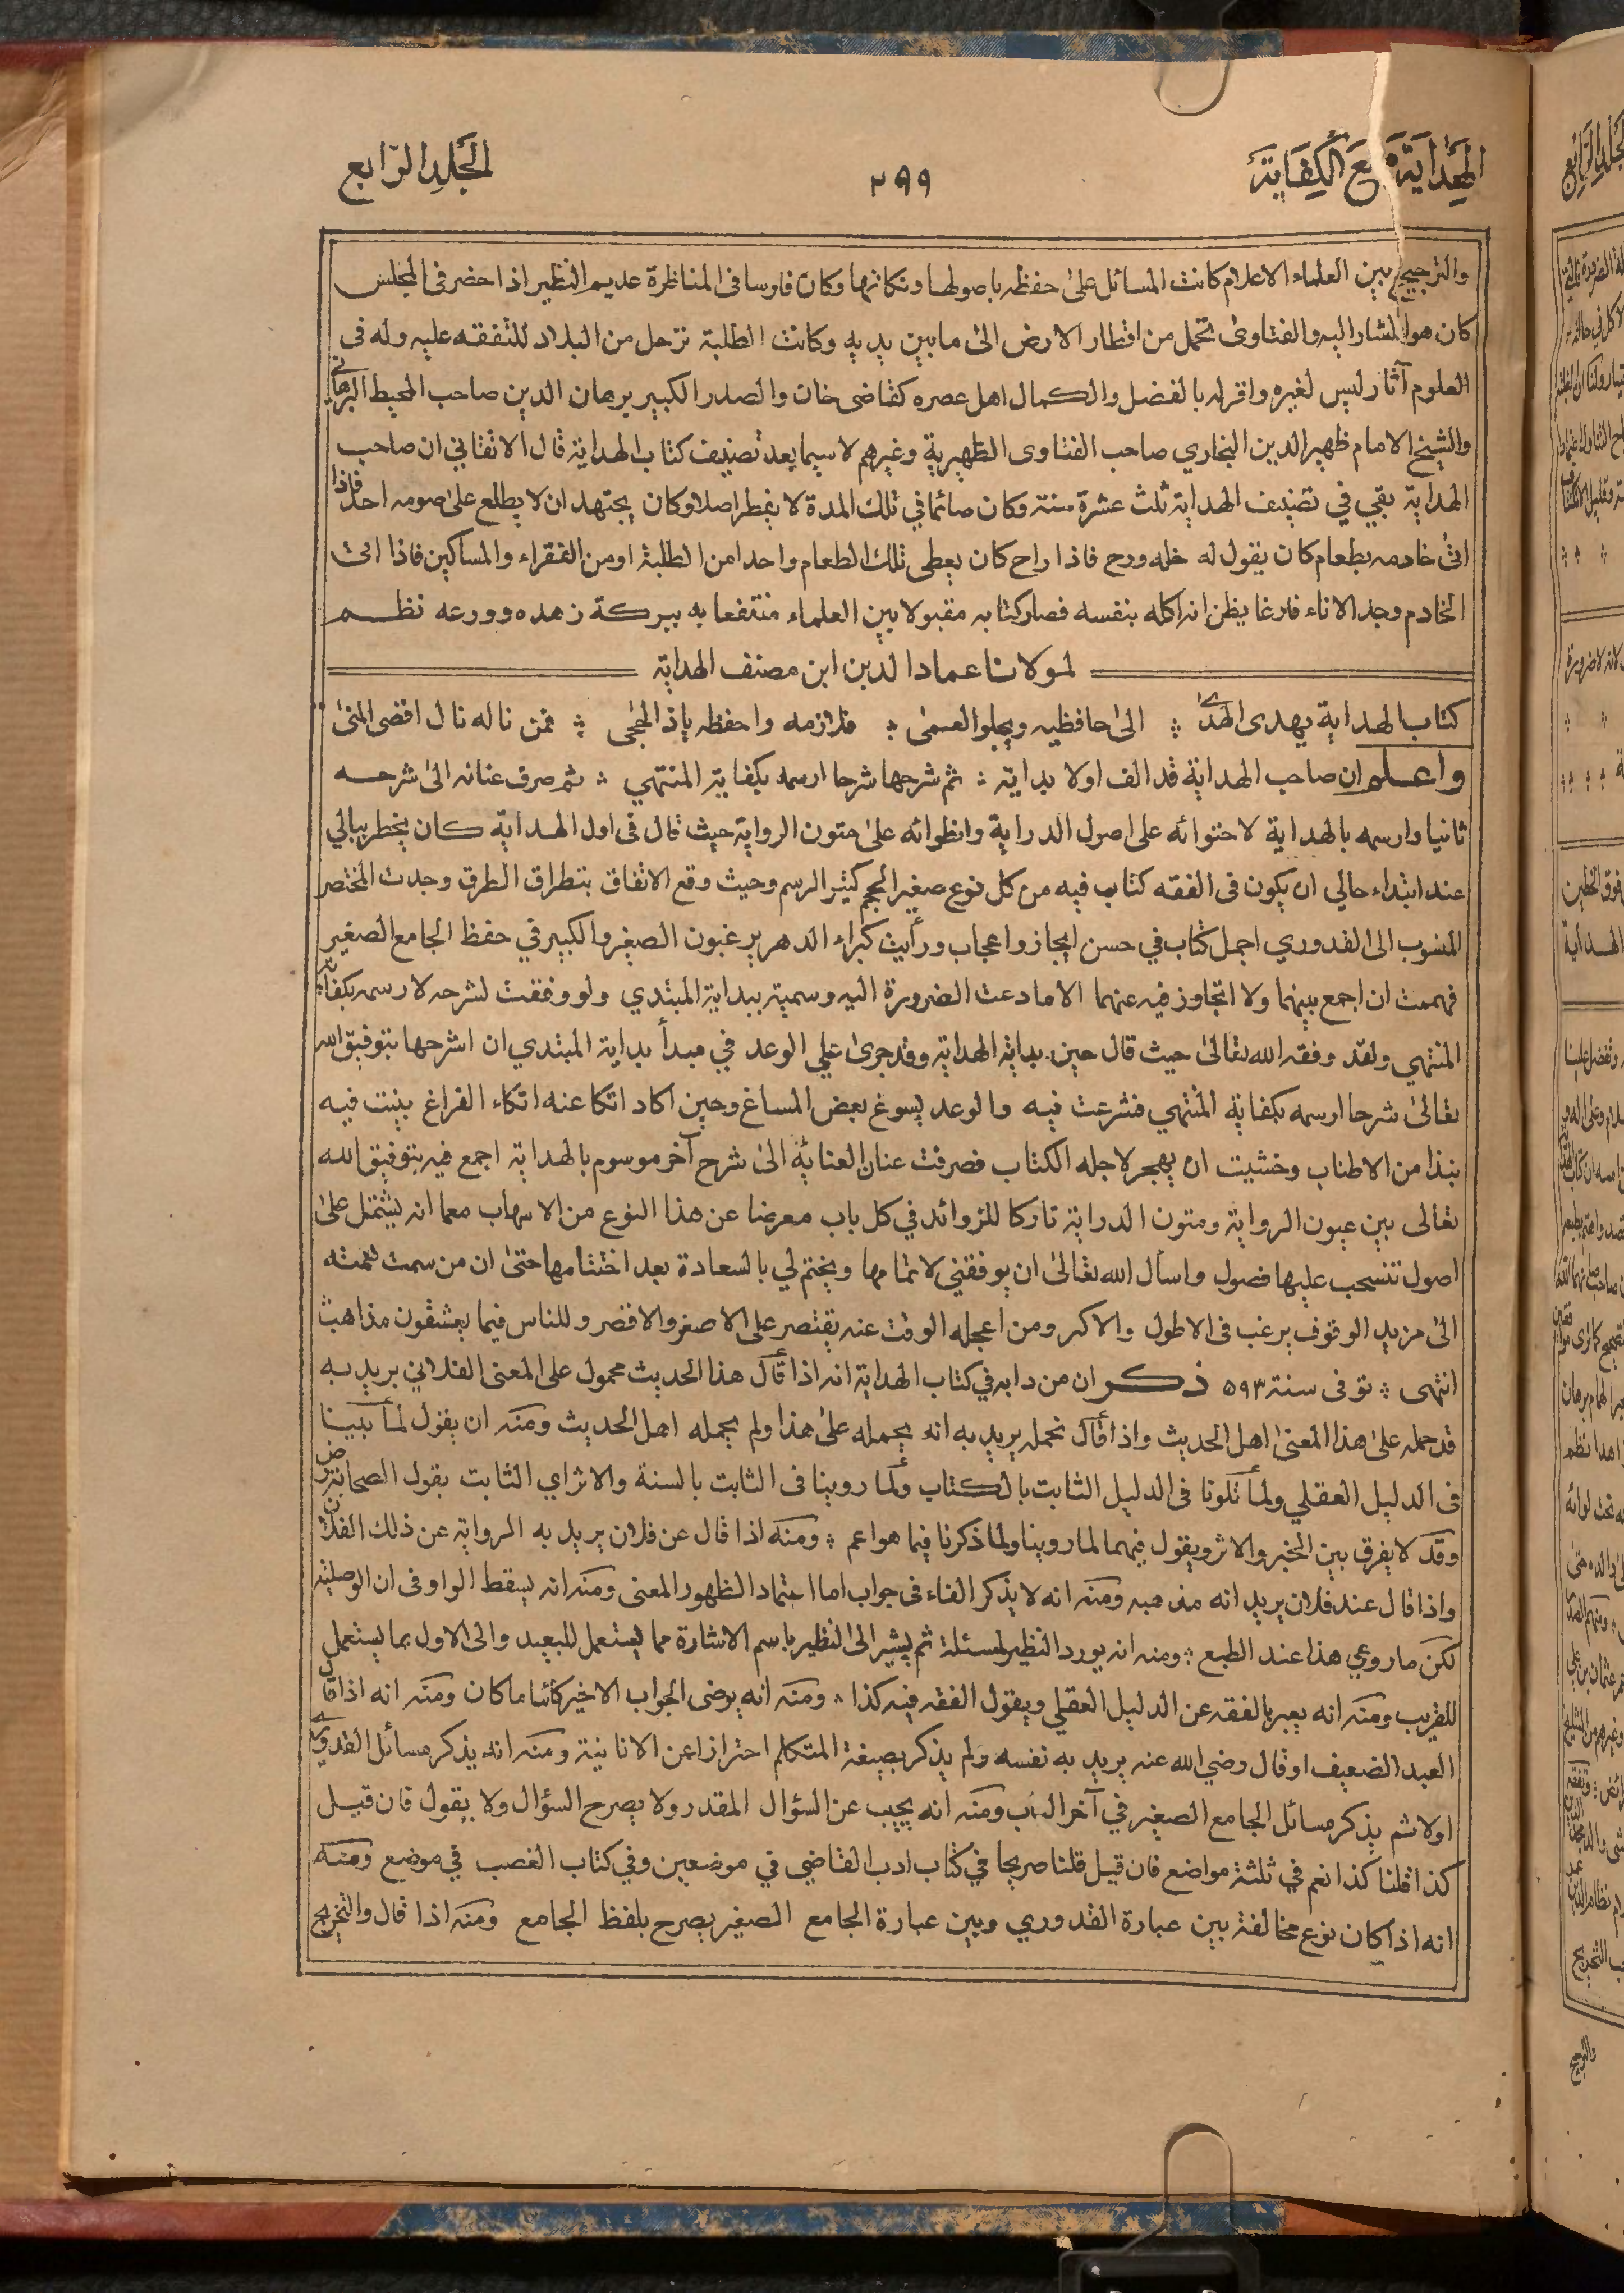 الهداية مع الكفاية
٢٩٩
المجلد الرابع
والترجيح بين العلماء الاعلام كانت المسائل على حفظه باصولها ونكاتها وكان فارسا فى المناظرة عديم النظير اذا حضر فى المجلس
كان هو المشار اليه والفتاوى تحمل من اقطار الارض الى ما بين يديه وكانت الطلبة ترحل من البلاد للتفقه عليه وله فى
العلوم آثار ليس لغيره واقر له بالفضل والكمال اهل عصره كقاضى خان والصدر الكبير برهان الدين صاحب المحيط البرهاني
والشيخ الامام ظهير الدين البخاري صاحب الفتاوى الظهيرية وغيرهم لا سيما بعد تصنيف كتاب الهداية قال الاتقاني ان صاحب
الهداية بقي في تصنيف الهداية ثلث عشرة سنة وكان صائما في تلك المدة لا يفطر اصلا وكان يجتهد ان لا يطلع على صومه احد فاذا
اتى خادمه بطعام كان يقول له خله ورح فاذا راح كان يعطى تلك الطعام واحدا من الطلبة او من الفقراء والمساكين فاذا اتى
الخادم وجد الاناء فارغا يظن انه اكله بنفسه فصار كتابه مقبولا بين العلماء منتفعا به ببركة زهده وورعه نظم
لمولانا عماد الدين ابن مصنف الهداية
كتاب الهداية يهدى الهدى ؞ الى حافظيه ويجلو العمى ؞ فلازمه واحفظه ياذ الحجى ؞ فمن ناله نال اقصى المنى
واعلم ان صاحب الهداية قد الف اولا بداية ؞ ثم شرحها شرحا ارسمه بكفاية المنتهي ؞ ثم صرف عنانه الى شرحه
ثانيا وارسمه بالهداية لاحتوائه على اصول الدراية وانطوائه على متون الرواية حيث قال فى اول الهداية كان يخطر ببالي
عند ابتداء حالي ان يكون فى الفقه كتاب فيه من كل نوع صغير الحجم كثير الرسم وحيث وقع الاتفاق بتطراق الطرق وجدت المختصر
المنسوب الى القدوري اجمل كتاب في حسن ايجاز واعجاب ورأيت كبراء الدهر يرغبون الصغير والكبير في حفظ الجامع الصغير
فهممت ان اجمع بينهما ولا اتجاوز فيه عنهما الا ما دعت الضرورة اليه وسميته ببداية المبتدي ولو وفقت لشرحه لا رسمه بكفاية
المنتهي ولقد وفقه الله تعالى حيث قال حين بداية الهداية وقد جرى علي الوعد في مبدأ بداية المبتدي ان اشرحها بتوفيق الله
تعالى شرحا ارسمه بكفاية المنتهي فشرعت فيه والوعد يسوغ بعض المساغ وحين اكاد اتكا عنه اتكاء الفراغ بينت فيه
نبذا من الاطناب وخشيت ان يهجر لاجله الكتاب فصرفت عنان العناية الى شرح آخر موسوم بالهداية اجمع فيه بتوفيق الله
تعالى بين عيون الرواية ومتون الدراية تاركا للزوائد في كل باب معرضا عن هذا النوع من الاسهاب معما انه يشتمل على
اصول تنسحب عليها فصول واسأل الله تعالى ان يوفقني لاتمامها ويختم لي بالسعادة بعد اختتامها حتى ان من سمت همته
الى مزيد الوقوف يرغب فى الاطول والاكبر ومن اعجله الوقت عنه يقتصر على الاصغر والاقصر وللناس فيما يعشقون مذاهب
انتهى ؞ توفى سنة ٥٩٣ ذكر ان من دابه في كتاب الهداية انه اذا قال هذا الحديث محمول على المعنى الفلاني يريد به
قد حمله على هذا المعنى اهل الحديث واذا قال نحمله يريد به انه يحمله على هذا ولم يحمله اهل الحديث ومنه ان يقول لما بينا
فى الدليل العقلي ولما تلونا فى الدليل الثابت بالكتاب ولما روينا فى الثابت بالسنة والاثر اي الثابت بقول الصحابة رض
وقد لا يفرق بين الخبر والاثر ويقول فيهما لما روينا ولما ذكرنا فيما هو اعم ؞ ومنه اذا قال عن فلان يريد به الرواية عن ذلك الفلان
واذا قال عند فلان يريد انه مذهبه ومنه انه لا يذكر الفاء فى جواب اما اعتمادا لظهور المعنى ومنه انه يسقط الواو فى ان الوصلية
لكن ما روعي هذا عند الطبع ؞ ومنه انه يورد النظير لمسئلة ثم يشير الى النظير باسم الاشارة مما يستعمل للبعيد والى الاول بما يستعمل
للقريب ومنه انه يعبر بالفقه عن الدليل العقلي ويقول الفقه فيه كذا ؞ ومنه انه يرضى الجواب الاخير كائنا ما كان ومنه انه اذا قال
العبد الضعيف او قال رضي الله عنه يريد به نفسه ولم يذكر بصيغة المتكلم احترازا عن الانانية ومنه انه يذكر مسائل القدوري
اولا ثم يذكر مسائل الجامع الصغير في آخر الباب ومنه انه يجيب عن السؤال المقدر ولا يصرح السؤال ولا يقول فان قيل
كذا قلنا كذا نعم في ثلثة مواضع فان قيل قلنا صريحا في كتاب ادب القاضي في موضعين وفي كتاب الغصب في موضع ومنه
انه اذا كان نوع مخالفة بين عبارة القدوري وبين عبارة الجامع الصغير يصرح بلفظ الجامع ومنه اذا قال والتخريج